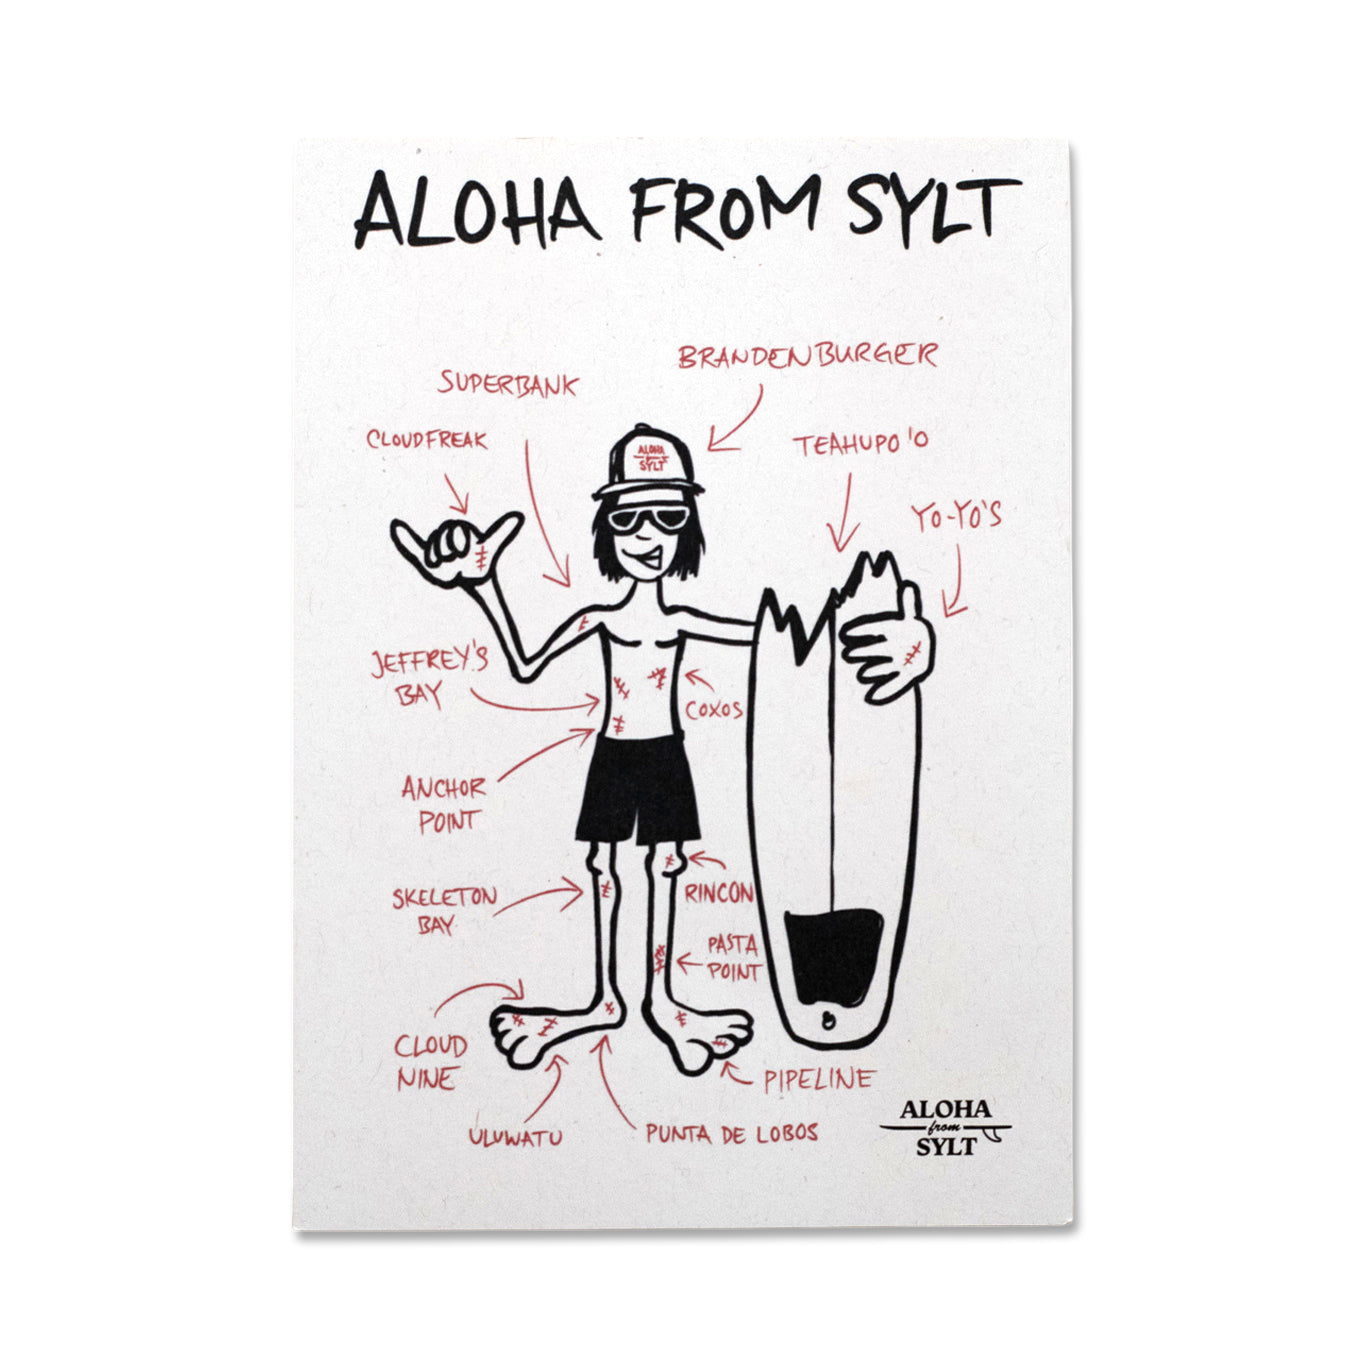 ALOHA FROM SYLT
BRANDENBURGER
SUPERBANK
CLOUDFREAK
TEAHUPO'O
ALOHA
from
SYLT
YO-YO'S
JEFFREY'S
BAY
COXOS
ANCHOR
POINT
SKELETON
BAY
RINCON
PASTA
POINT
CLOUD
NINE
PIPELINE
ULUWATU
PUNTA DE LOBOS
ALOHA
from
SYLT